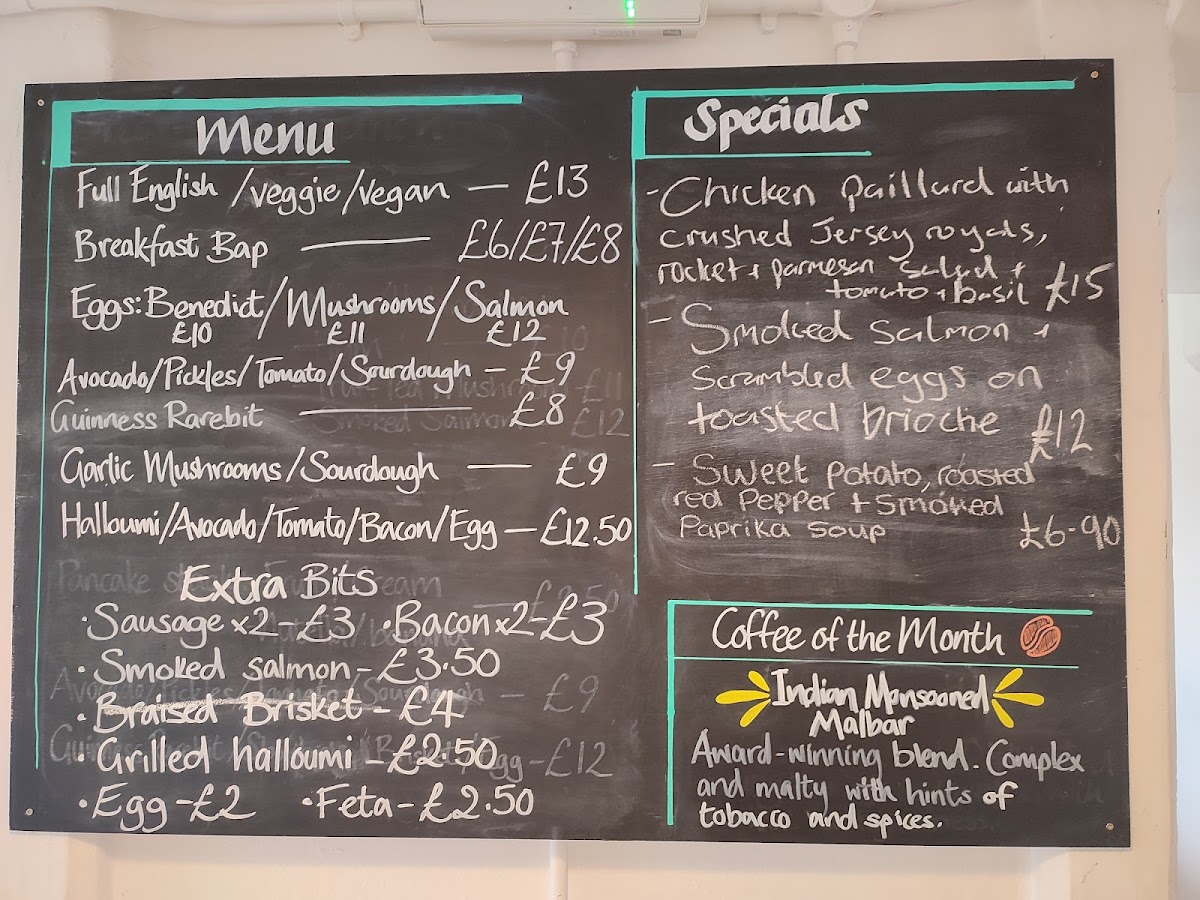 Menu
Full English /veggie/vegan — £13
Breakfast Bap — £6/£7/£8
Eggs: Benedict/Mushrooms/Salmon
£10 £11 £12
Avocado/Pickles/Tomato/Sourdough – £9
Guinness Rarebit — £8
Garlic Mushrooms/Sourdough — £9
Halloumi/Avocado/Tomato/Bacon/Egg — £12.50
Extra Bits
·Sausage x2-£3 ·Bacon x2-£3
·Smoked salmon-£3.50
·Braised Brisket-£4
·Grilled halloumi -£2.50
·Egg-£2 ·Feta-£2.50
Specials
-Chicken Paillard with
crushed Jersey royals,
rocket + parmesan salad +
tomato + basil £15
- Smoked salmon +
scrambled eggs on
toasted brioche £12
- Sweet potato, roasted
red Pepper + smoked
Paprika soup £6-90
Coffee of the Month
Indian Monsooned
Malbar
Award-winning blend. Complex
and malty with hints of
tobacco and spices.